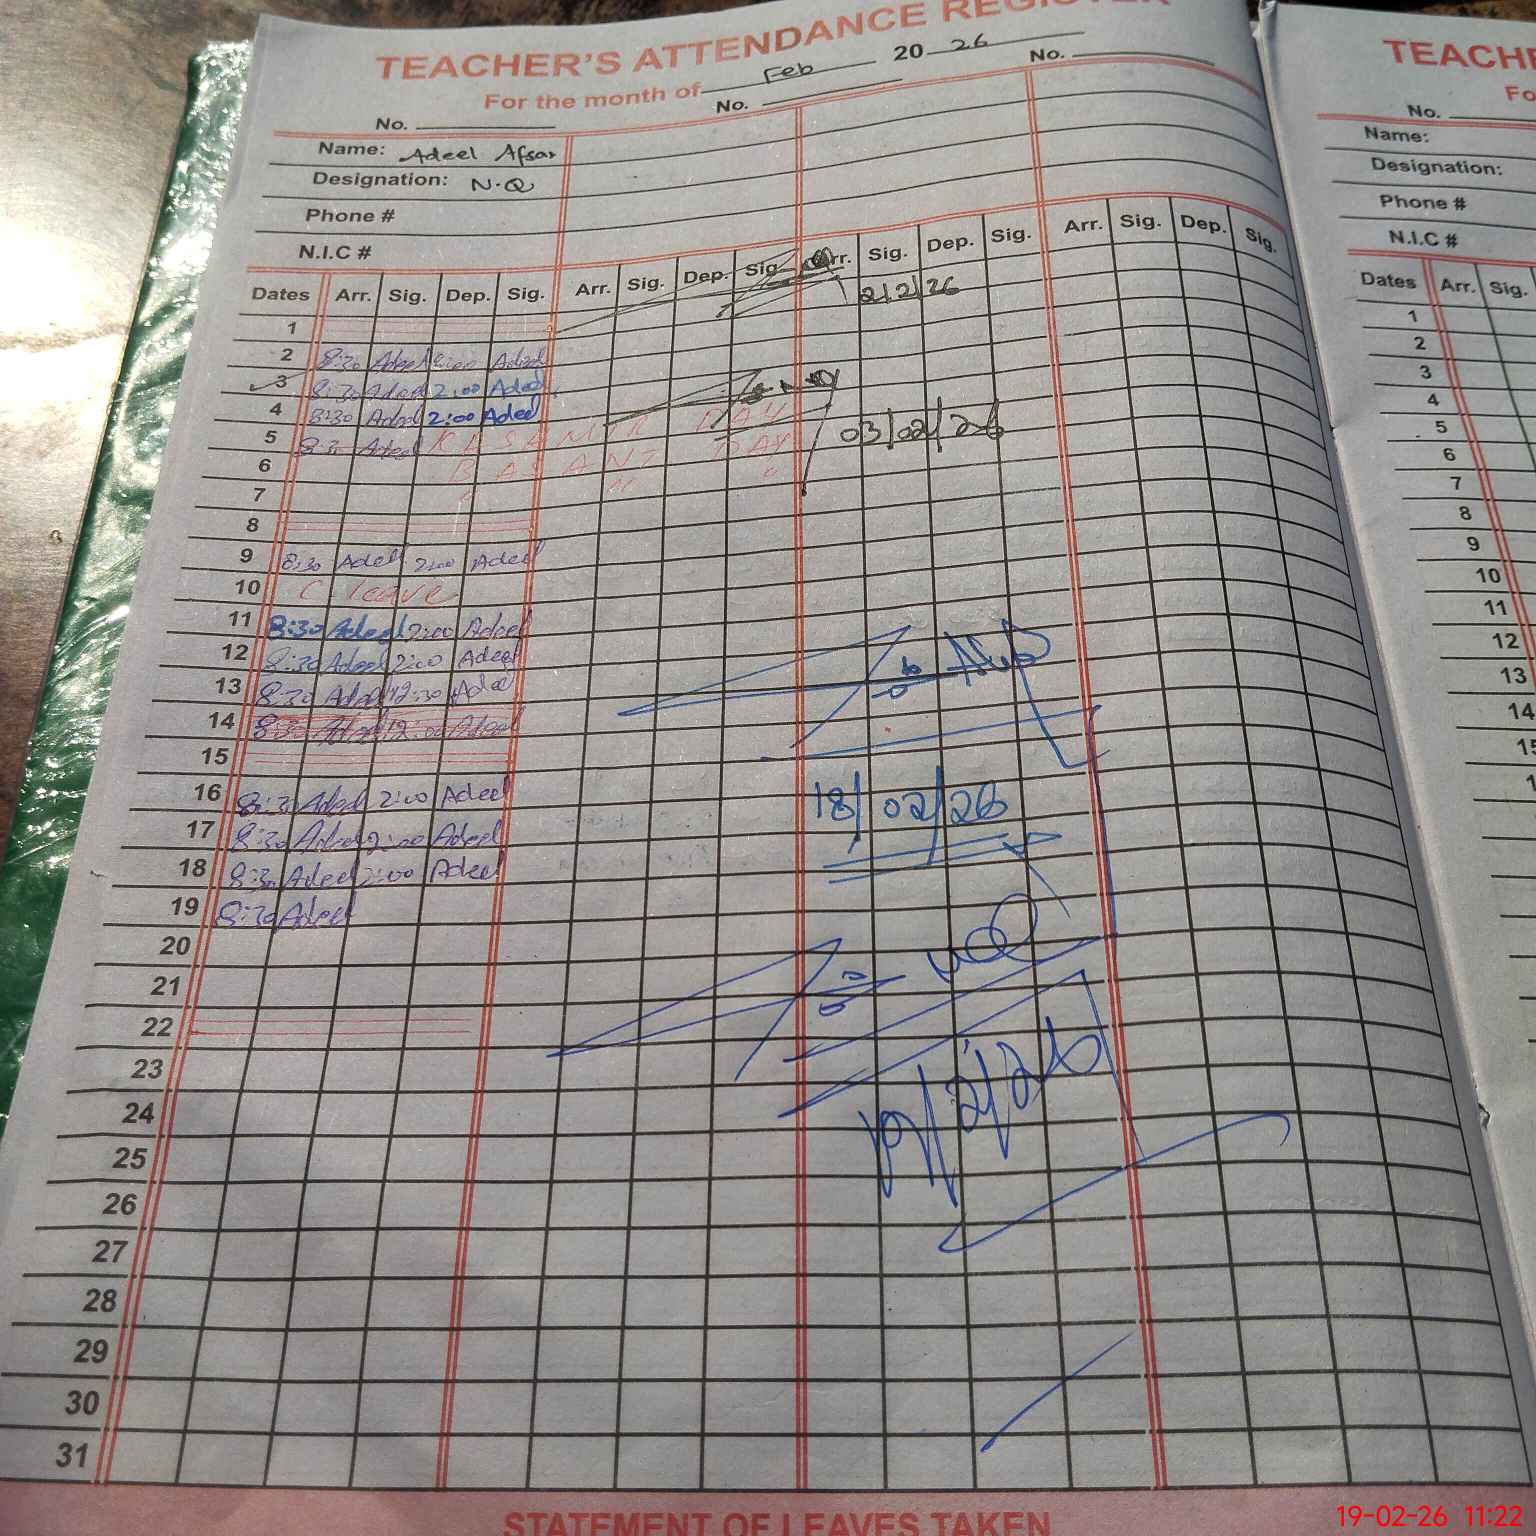 TEACHER'S ATTENDANCE REGISTER
For the month of Feb 20 26
No. No. No.
Name: Adeel Afsar
Designation: N.Q
Phone #
N.I.C #
Dates Arr. Sig. Dep. Sig. Arr. Sig. Dep. Sig. Arr. Sig. Dep. Sig. Arr. Sig. Dep. Sig.
2/2/26
1
2 8:30 Adeel 2:00 Adeel
3 8:30 Adeel 2:00 Adeel
4 8:30 Adeel 2:00 Adeel
5 8:30 Adeel DAY
03/02/26
6 BASANT DAY
7 " " "
8
9 8:30 Adeel 2:00 Adeel
10 C. leave
11 8:30 Adeel 2:00 Adeel
12 8:30 Adeel 2:00 Adeel
13 8:30 Adeel 12:30 Adeel
14 8:30 Adeel 12:00 Adeel
15
16 8:30 Adeel 2:00 Adeel
18/02/26
17 8:30 Adeel 2:00 Adeel
18 8:30 Adeel 2:00 Adeel
19 8:30 Adeel
20
21
22
23
24
19/2/26
25
26
27
28
29
30
31
STATEMENT OF LEAVES TAKEN
TEACHE
Fo
No.
Name:
Designation:
Phone #
N.I.C #
Dates Arr. Sig.
1
2
3
4
5
6
7
8
9
10
11
12
13
14
15
19-02-26 11:22